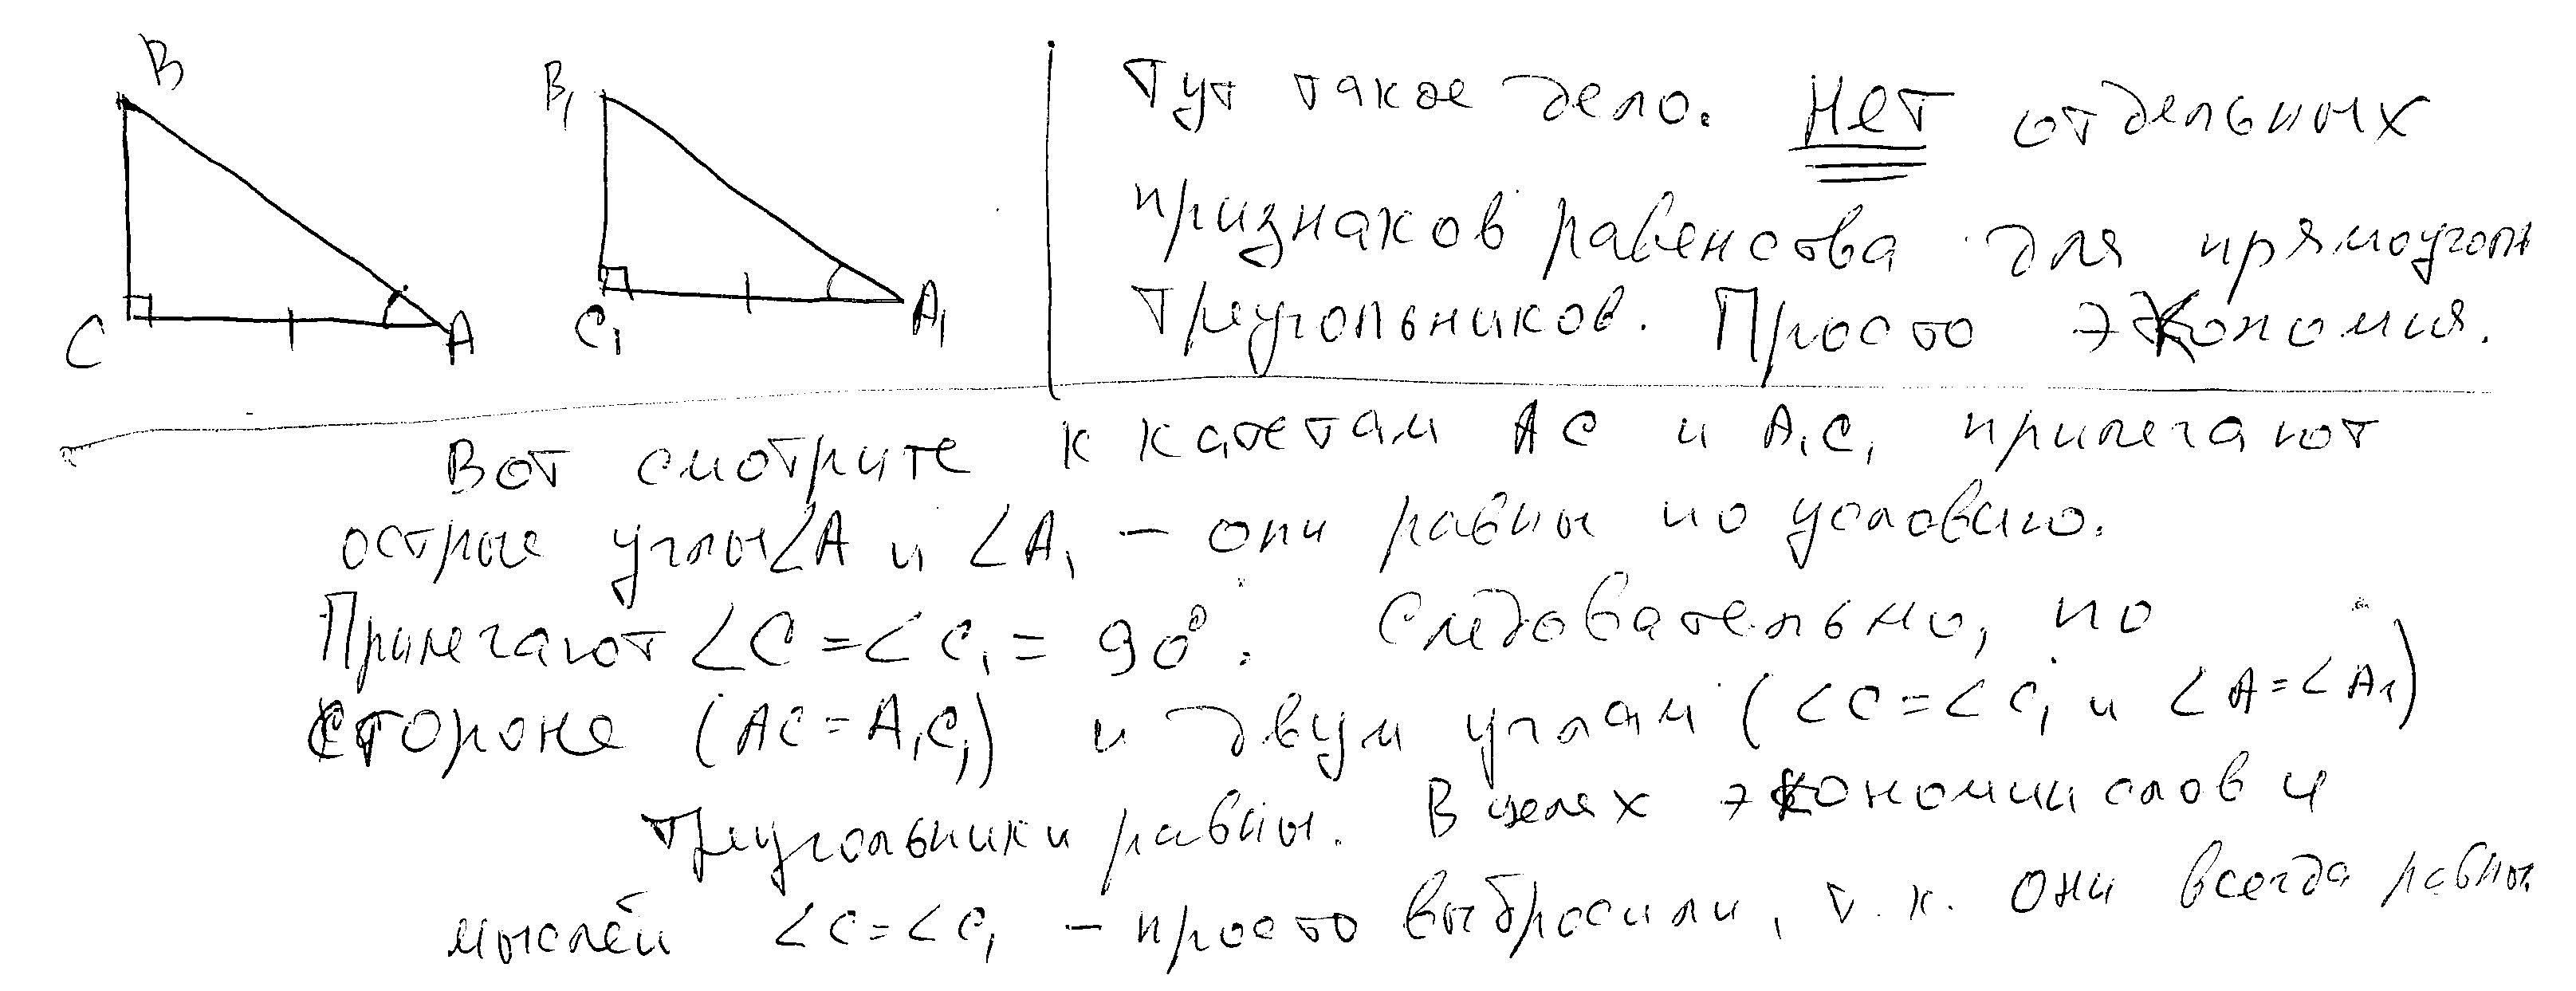 B
B₁
C
A
C₁
A₁
Тут такое дело. Нет отдельных
признаков равенства для прямоугольн
треугольников. Просто экономия.
Вот смотрите к катетам AC и A₁C₁ прилегают
острые углы ∠A и ∠A₁ – они равны по условию.
Прилегают ∠C = ∠C₁ = 90°. Следовательно, по
стороне (AC = A₁C₁) и двум углам (∠C = ∠C₁ и ∠A = ∠A₁)
треугольники равны. В целях экономии слов и
мыслей ∠C = ∠C₁ – просто выбросили, т.к. они всегда равны.